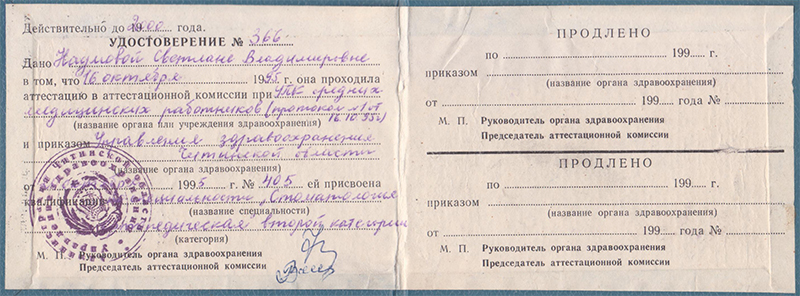 Действительно до 2000 года.
УДОСТОВЕРЕНИЕ № 366
Дано Наумовой Светлане Владимировне
в том, что 16 октября 1995 г. она проходила
аттестацию в аттестационной комиссии при средних
медицинских работников (протокол №1 от
(название органа или учреждения здравоохранения) 16.10.95г)
и приказом Управления здравоохранения
Читинской области
(название органа здравоохранения)
от 1995 г. № 405 ей присвоена
квалификация специальности „Стоматология
(название специальности)
второй категории
(категория)
М. П. Руководитель органа здравоохранения
Председатель аттестационной комиссии
ПРОДЛЕНО
по 199 г.
приказом
(название органа здравоохранения)
от 199 года №
М. П. Руководитель органа здравоохранения
Председатель аттестационной комиссии
ПРОДЛЕНО
по 199 г.
приказом
(название органа здравоохранения)
от 199 года №
М. П. Руководитель органа здравоохранения
Председатель аттестационной комиссии